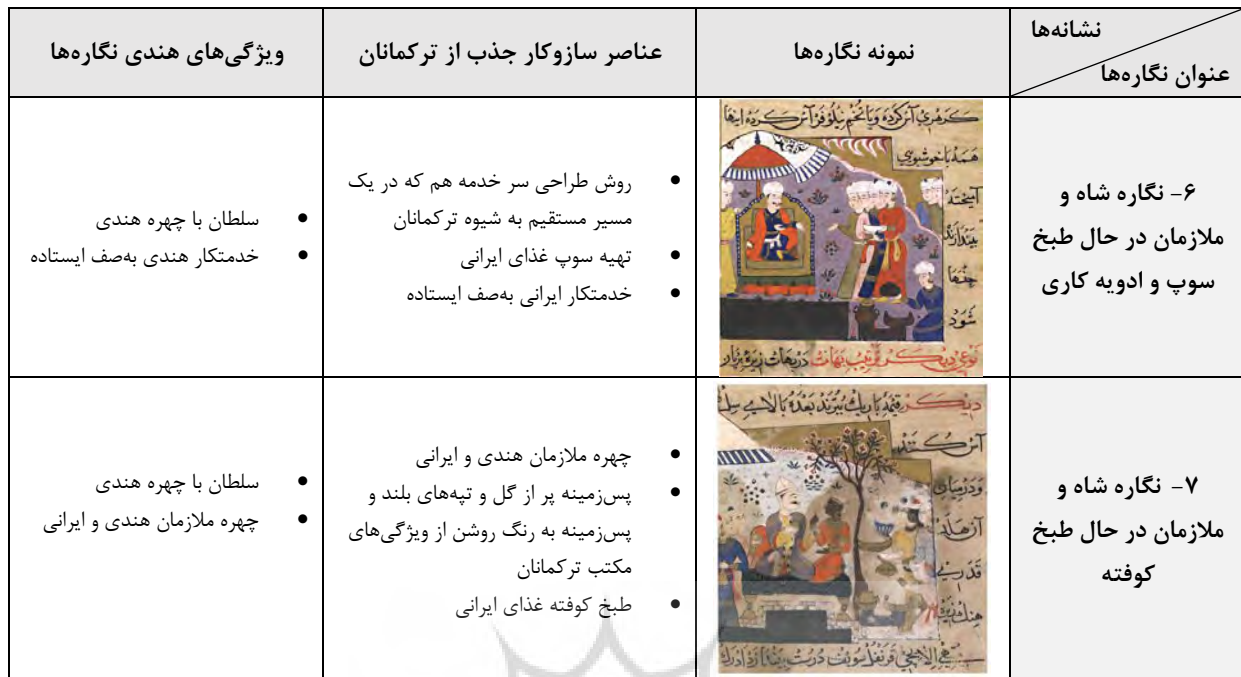 نشانه‌ها
عنوان نگاره‌ها
نمونه نگاره‌ها
عناصر سازوکار جذب از ترکمانان
ویژگی‌های هندی نگاره‌ها
۶- نگاره شاه و
ملازمان در حال طبخ
سوپ و ادویه کاری
همه باخوشبویی
آمیخته
بیندازند
جنها
شود
• روش طراحی سر خدمه هم که در یک
مسیر مستقیم به شیوه ترکمانان
• تهیه سوپ غذای ایرانی
• خدمتکار ایرانی به‌صف ایستاده
• سلطان با چهره هندی
• خدمتکار هندی به‌صف ایستاده
۷- نگاره شاه و
ملازمان در حال طبخ
کوفته
ودرمیان
آن هلد
قدری
• چهره ملازمان هندی و ایرانی
• پس‌زمینه پر از گل و تپه‌های بلند و
پس‌زمینه به رنگ روشن از ویژگی‌های
مکتب ترکمانان
• طبخ کوفته غذای ایرانی
• سلطان با چهره هندی
• چهره ملازمان هندی و ایرانی